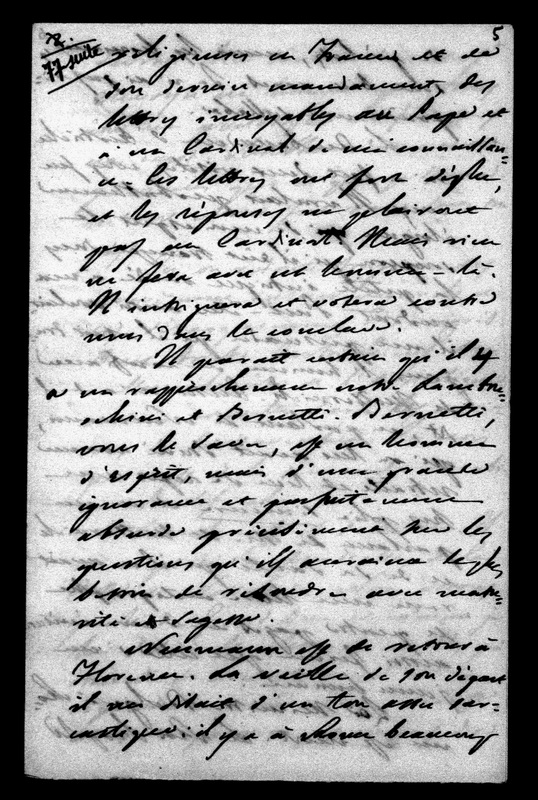 5
77 suite
religieuses en France et de
son dernier mandement, des
lettres incroyables au Pape et
à un Cardinal de ma connaissan=
ce. Ces lettres ont fort déplu,
et les réponses ne plairont
pas au Cardinal. Mais rien
ne fera avec cet homme-là.
Il intriguera et votera contre
nous dans le conclave.
Il parait certain qu'il y
a un rapprochement entre Lambru=
schini et Bernetti. Bernetti,
vous le savez, est un homme
d'esprit, mais d'une grande
ignorance et parfaitement
absurde précisément sur les
questions qu'ils auraient le plus
besoin de résoudre avec matu=
rité et sagesse.
Neumann est de retour à
Florence. La veille de son départ
il me disait d'un ton assez sar=
castique: il y a à Rome beaucoup